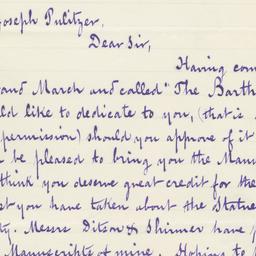 Joseph Pulitzer,
Dear Sir,
Having com
and March and called "The Barth
ld like to dedicate to you, (that is
permission) should you approve of it
be pleased to bring you the Manu
think you deserve great credit for the
st you have taken about the Statue
ty. Messrs Ditson & Shirmer have p
Manuscripts of mine. Hoping to